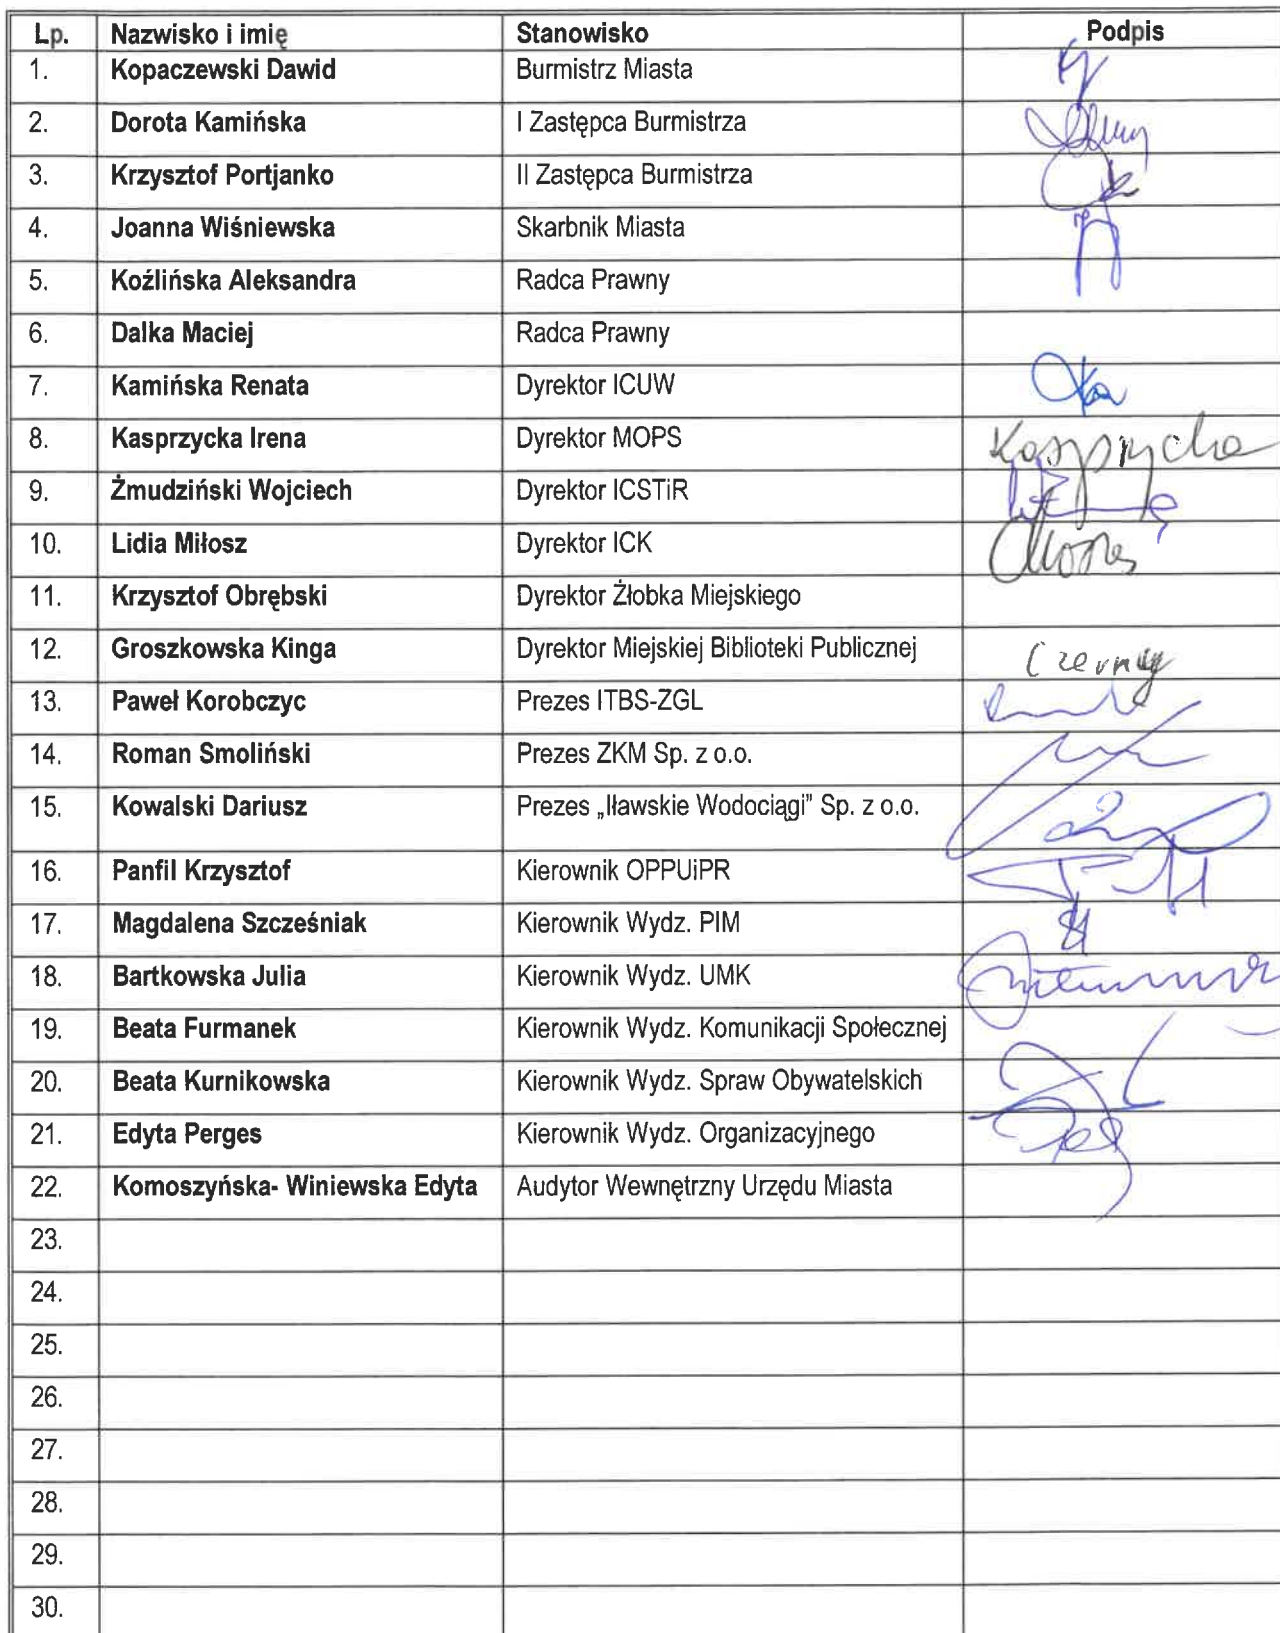 Lp. Nazwisko i imię Stanowisko Podpis
1. Kopaczewski Dawid Burmistrz Miasta
2. Dorota Kamińska I Zastępca Burmistrza
3. Krzysztof Portjanko II Zastępca Burmistrza
4. Joanna Wiśniewska Skarbnik Miasta
5. Koźlińska Aleksandra Radca Prawny
6. Dalka Maciej Radca Prawny
7. Kamińska Renata Dyrektor ICUW
8. Kasprzycka Irena Dyrektor MOPS Kasprzycka
9. Żmudziński Wojciech Dyrektor ICSTiR
10. Lidia Miłosz Dyrektor ICK
11. Krzysztof Obrębski Dyrektor Żłobka Miejskiego
12. Groszkowska Kinga Dyrektor Miejskiej Biblioteki Publicznej
13. Paweł Korobczyc Prezes ITBS-ZGL
14. Roman Smoliński Prezes ZKM Sp. z o.o.
15. Kowalski Dariusz Prezes „Iławskie Wodociągi” Sp. z o.o.
16. Panfil Krzysztof Kierownik OPPUiPR
17. Magdalena Szcześniak Kierownik Wydz. PIM
18. Bartkowska Julia Kierownik Wydz. UMK
19. Beata Furmanek Kierownik Wydz. Komunikacji Społecznej
20. Beata Kurnikowska Kierownik Wydz. Spraw Obywatelskich
21. Edyta Perges Kierownik Wydz. Organizacyjnego
22. Komoszyńska- Winiewska Edyta Audytor Wewnętrzny Urzędu Miasta
23.
24.
25.
26.
27.
28.
29.
30.